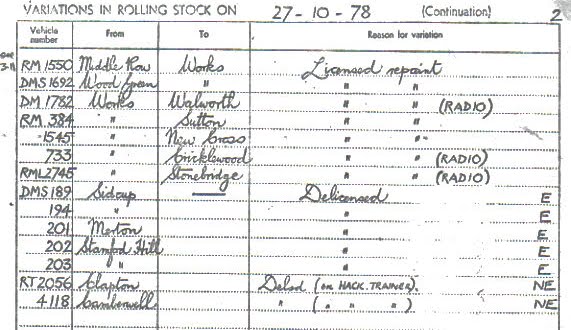 VARIATIONS IN ROLLING STOCK ON 27-10-78 (Continuation) 2
Vehicle number From To Reason for variation
RM 1550 Middle Row Works Licensed repaint
DMS 1692 Wood Green " " "
DM 1782 Works Walworth " " (RADIO)
RM 384 " Sutton " "
1545 " New Cross " "
733 " Cricklewood " " (RADIO)
RML 2745 " Stonebridge " " (RADIO)
DMS 189 Sidcup — Delicensed E
194 " " E
201 Merton " E
202 Stamford Hill " E
203 " " E
RT 2056 Clapton Delcd (on HACK. TRAINER). NE
4118 Camberwell " ( " " " ) NE